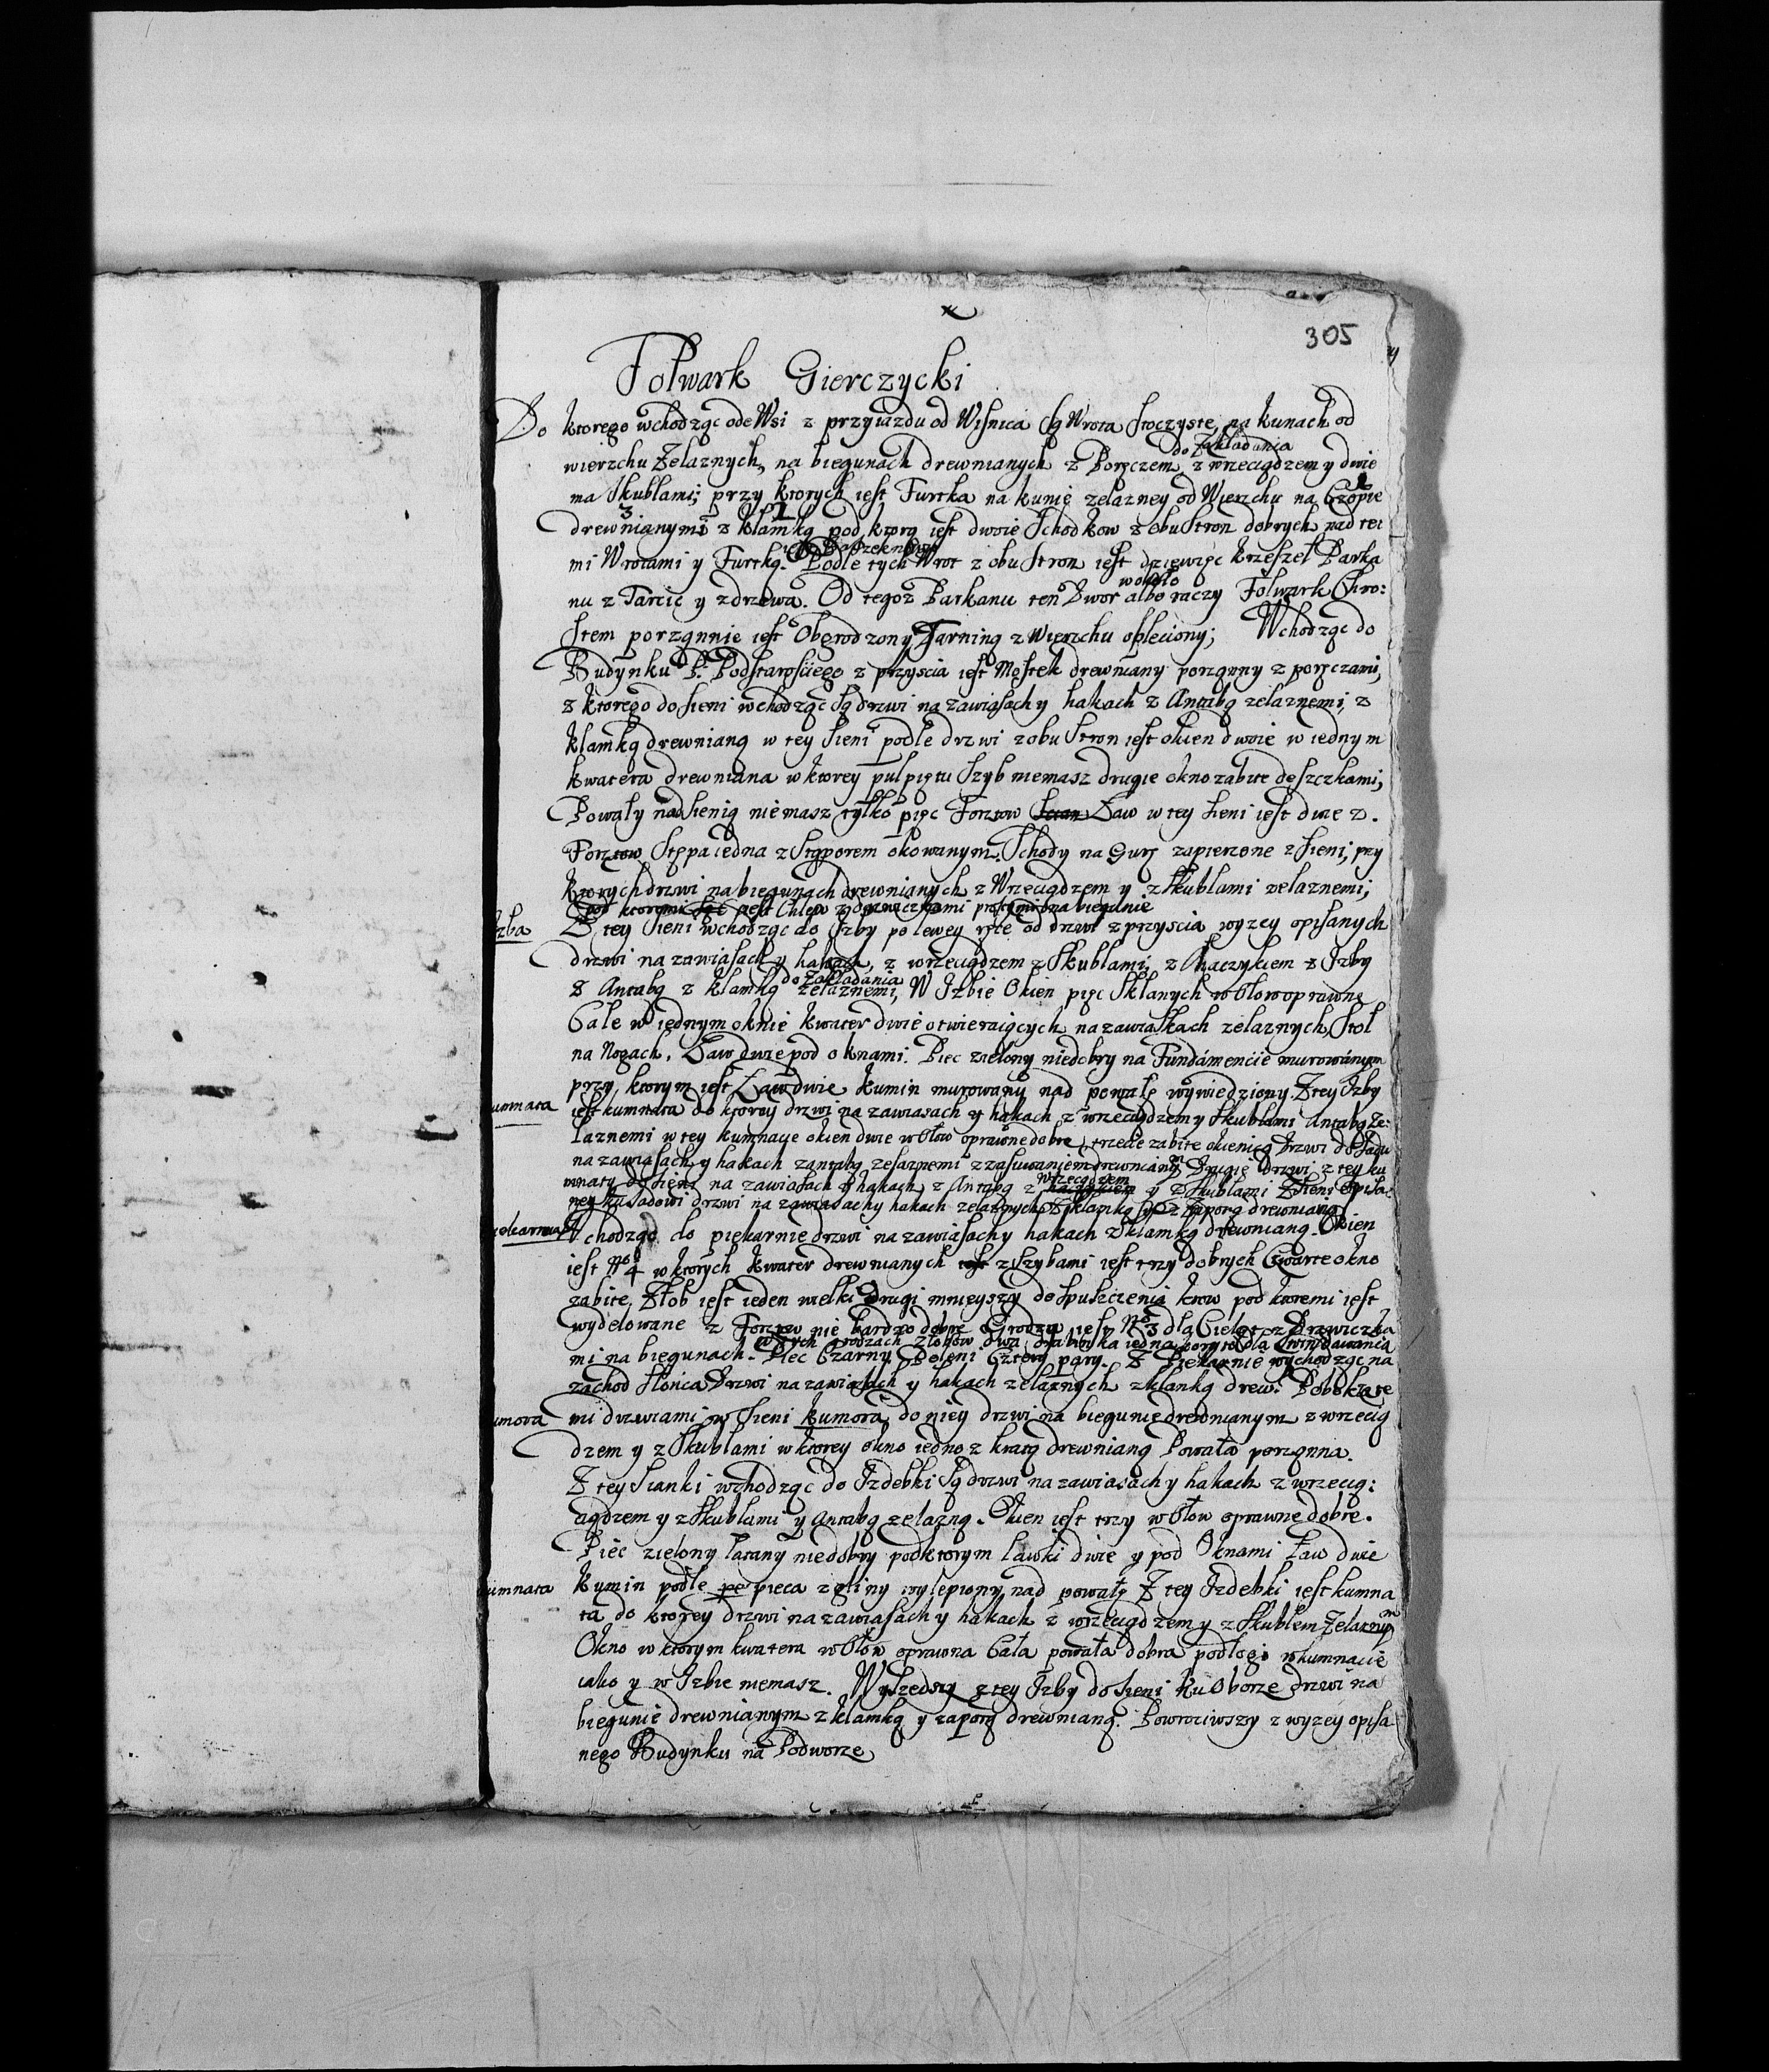 305
Folwark Gierczycki
Do ktorego wchodząc ode Wsi z przyiazdu od Wisnica są Wrota stoczyste, na kunach od
do Zakładania
wierzchu Zelaznych, na biegunach drewnianych z Poręczem, z wrzeciądzem y dwie
ma Skublami; przy ktorych iest Furtka na kunie zelazney od Wierzchu na Czopie
drewnianymi z klamką pod ktorą iest dwoie Schodkow z obu Stron dobrych nad temi
mi Wrotami y Furtką. Podle tych Wrot z obu Stron iest dziewięc krzeseł Parka
wokoło
nu z Tarcic y zdrzewa. Od tegoz Parkanu ten Dwor albo raczy Folwark Chro:
stem porządnie iest Obgrodzony Tarniną z Wierzchu opleciony; Wchodząc do
Budynku P. Podstarosciego z przyscia iest Mostek drewniany porządny z poręczami,
z ktorego do sieni wchodząc są drzwi na zawiasach y hakach z Antabą zelaznemi, z
klamką drewnianą w tey sieni podle drzwi z obu Stron iest okien dwoie w iednym
kwatera drewniana w ktorey pulpiętu szyb niemasz drugie okno zabite deszczkami;
Powały nad sienią niemasz tylko pięc Forztow Ław w tey sieni iest dwie z
Forztow Stępa iedna z Stęporem okowanym. Schody na Gurę zapierzone z sieni, przy
ktorych drzwi na biegunach drewnianych z Wrzeciądzem y z Skublami zelaznemi;
pod ktoremi iest Chlew z drzwiczkami na biegunie
Izba
Z tey Sieni wchodząc do Izby po lewey ręce od drzwi z przyscia wyzey opisanych
drzwi na zawiasach y hakach, z wrzeciądzem z Skublami z Haczykiem z Izby
do Zakładania
z Antabą z klamką zelaznemi, W Izbie Okien pięc Sklanych w Ołow oprawne
Cale w iednym oknie kwater dwie otwieraiących na zawiaskach zelaznych, Stol
na Nogach, Ław dwie pod oknami. Piec zielony niedobry na Fundamencie murowanym
przy ktorym iest Ław dwie kumin murowany nad powałę wywiedziony Z tey Izby
umnata
iest kumnata do ktorey drzwi na zawiasach y hakach z wrzeciądzem y Skublami Antabą Ze:
laznemi w tey kumnacie okien dwie w Ołow oprawne dobre trzecie zabite okienicą Drzwi do Sadu
na zawiasach y hakach z antabą zelaznemi z zasuwaniem drewnianym Drugie Drzwi z tey ku
wrzeciądzem
mnaty do sieni na zawiasach y hakach z Antabą z haczykiem y z Skublami Z Sieni Opisa
ney ku Sadowi drzwi na zawiasach y hakach zelaznych z klamką y z zaporą drewnianą
Wchodząc do piekarnie drzwi na zawiasach y hakach z klamką drewnianą. Okien
iest No 4 w ktorych kwater drewnianych z Szybami iest trzy dobrych Czwarte okno
zabite, Złob iest ieden wielki Drugi mnieyszy do Spuszczenia krow pod ktoremi iest
wydelowane z Forztow nie bardzo dobre Grodza iest No 3 dla Cieląt z Drzwiczka
w tych grodzach Złobow dwa Drabinka iedna
mi na biegunach. Piec Czarny Soleni Cztery pary. Z Piekarnie wychodząc na
zachod Słonca Drzwi na zawiasach y hakach zelaznych z klamką drew: Pobok te
umora
mi drzwiami w Sieni kumora do niey drzwi na biegunie drewnianym z wrzecią
dzem y z Skublami w ktorey okno iedno z kratą drewnianą Powała porządna.
Z tey Sianki wchodząc do Izdebki Są drzwi na zawiasach y hakach z wrzecią:
ądzem y z Skublami y Antabą zelazną. Okien iest trzy w Ołow oprawne dobre.
Piec zielony łatany niedobry pod ktorym ławki dwie y pod Oknami Ław dwie
umnata
kumin podle pieca z gliny wylepiony nad powałę Z tey Izdebki iest kumna
ta do ktorey drzwi na zawiasach y hakach z wrzeciądzem y z Skublem Zelaznym
Okno w ktorym kwatera w Ołow oprawna Cała powała dobra podłogi w kumnacie
iako y w Izbie niemasz. Wyszedszy z tey Izby do sieni ku Oborze drzwi na
biegunie drewnianym z klamką y zaporą drewnianą. Powrociwszy z wyzey opisa
nego Budynku na Podworze